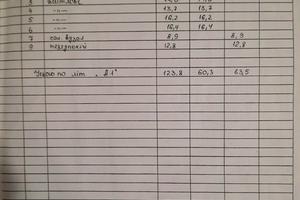 4 -"- 13,7 13,7
5 -"- 16,2 16,2
6 -"- 16,4 16,4
7 сан. вузол 8,9 8,9
8 12,8 12,8
Усього по літ. 123,8 60,3 63,5